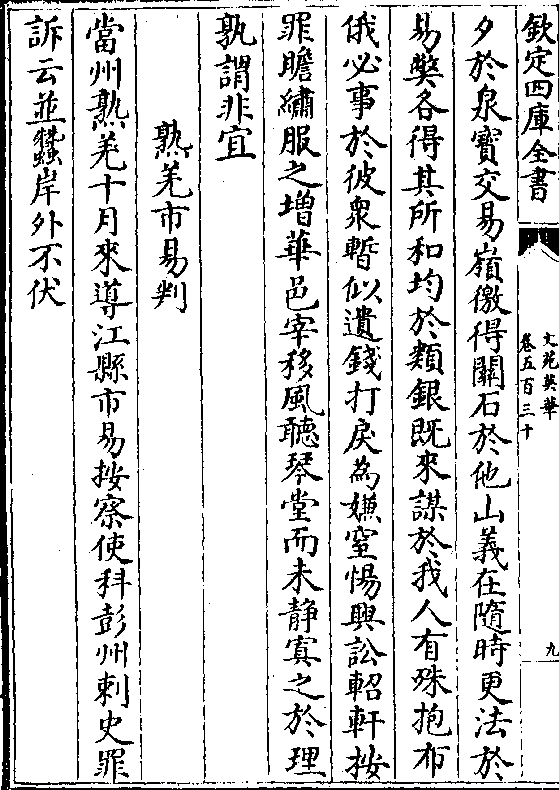 欽定四庫全書
文苑英華
卷五百三十
九
夕於泉寶交易嶺徼得關石於他山義在隨時更法於
易獘各得其所和均於類銀既來謀於我人有殊抱布
俄必事於彼衆暫似遺錢打戾為嫌窒惕興訟軺軒按
罪瞻繡服之増華邑宰移風聴琴堂而未静寘之於理
孰謂非宜
熟羌市易判
當州熟羌十月來導江縣市易按察使科彭州刺史罪
訴云並蠶岸外不伏